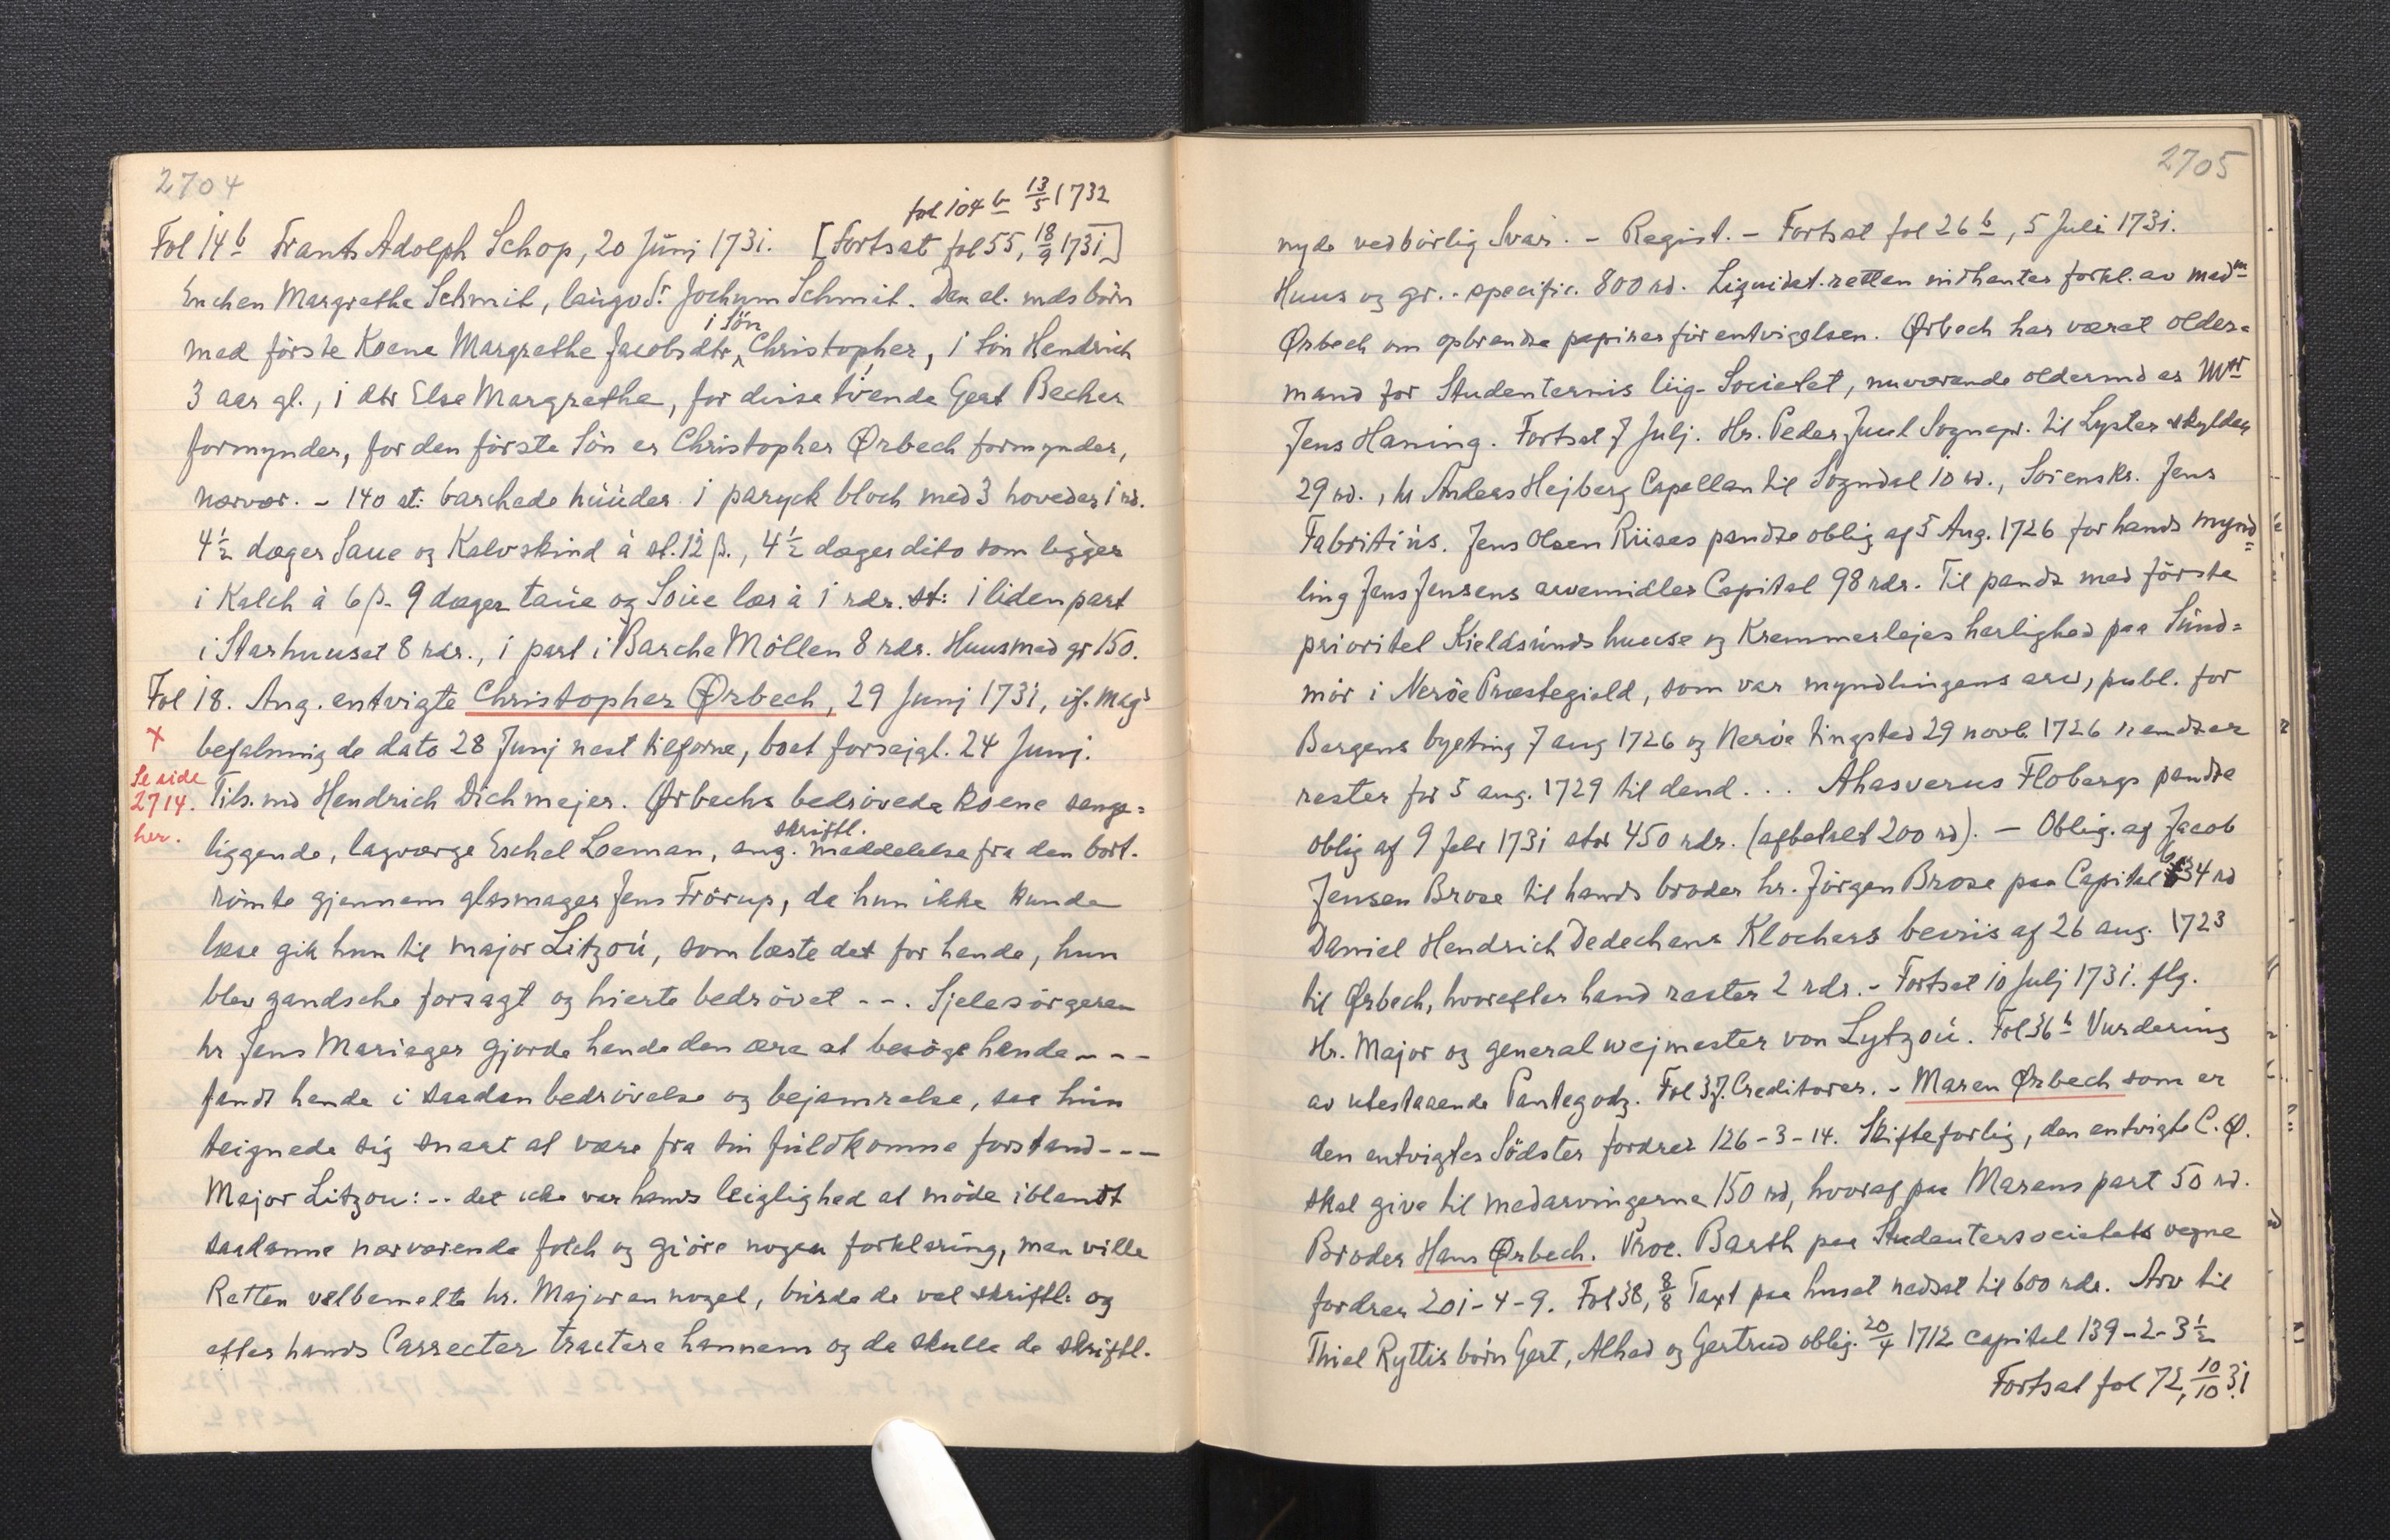 2704
fol 104 b 13/5 1732
Fol 14 b Frants Adolph Schop, 20 Junj 1731. [Fortsat fol 55, 18/9 1731]
Enchen Margrethe Schmit, laugv. Sr. Jochum Schmit. Den al. mds børn
med første Koene Margrethe Jacobsdtr, 1 Søn Christopher, 1 Søn Hendrich
3 aar gl., 1 dtr Else Margrethe, for disse tvende Gert Becher
formynder, for den første Søn er Christopher Ørbech formynder,
nærvær. - 140 st: barchede huuder. 1 paryck bloch med 3 hoveder 1 rd.
4½ deger Saue og Kalvskind à st. 12 β., 4½ deger dito som legger
i Kalch à 6 β. 9 deger taue og Soue lær à 1 rdr. st: 1 liden part
i Starhuuset 8 rdr., 1 part i Barche Møllen 8 rdr. Huus med gr 150.
Fol 18. Ang. entvigte Christopher Ørbech, 29 Junj 1731, if. Mags
+ befalning de dato 28 Junj nest tilforne, boet forsejgl. 24 Junj.
Se side
2714.
her.
Tils. md Hendrich Dichmejer. Ørbechs bedrøvede Koene senge=
liggende, lagværge Eschel Loeman, ang. skriftl. meddelelse fra den bort.
rømte gjennem glasmager Jens Frørup, da hun ikke kunde
læse gik hun til major Litzou, som læste det for hende, hun
blev gandsche forsagt og hierte bedrøvet - - . Sjelesørgeren
hr Jens Mariager gjorde hende den ære at besøge hende - - -
fandt hende i saadan bedrøvelse og bejamrelse, saa hun
teignede sig snart at være fra sin fuldkomne forstand - - -
Major Litzou: - - det icke var hands leiglighed at møde iblandt
saadanne nærværende folch og giøre nogen forklaring, men ville
Retten velbemelte hr. Majoren noget, burde de vel skriftl: og
efter hands Carrecter tractere hannem og da skulle de skriftl.
2705
nyde vedbørlig Svar. - Regist. - Fortsat fol 26 b, 5 Juli 1731.
Huus og gr. - specific. 800 rd. Liquidat. retten indhenter forkl. av mad m
Ørbech om opbrendte papirer før entvigelsen. Ørbech har været older=
mand for Studenternis liig-Societet, nuværende oldermd er Mr
Jens Haning. Fortsat 7 Julj. Hr. Peder Juul Sognepr. til Lyster skylder
29 rd., hr Anders Hejberg Capellan til Sogndal 10 rd., Sorenskr. Jens
Fabritius. Jens Olsen Riises pandte oblig af 5 Aug. 1726 for hands mynd=
ling Jens Jensens arvemidler Capital 98 rdr. Til pandt med første
prioritet Kieldsunds huuse og Kremmerlejes herlighed paa Sund=
mør i Nerøe Præstegield, som var myndlingens arv, publ. for
Bergens byeting 7 aug 1726 og Nerøe tingsted 29 novb 1726 rendter
rester for 5 aug. 1729 til dend . . . Ahasverus Flobergs pandte
oblig af 9 Febr 1731 stor 450 rdr. (afbetalt 200 rd). - Oblig. af Jacob
Jensen Brose til hands broder hr. Jørgen Brose paa Capital 634 rd
Daniel Hendrich Dedechens Klochers beviis af 26 aug. 1723
til Ørbech, hvorefter hand rester 2 rdr. - Fortsat 10 Julj 1731. flg.
Hr. Major og general wejmester von Lytzou. Fol 36 b Vurdering
av utestaaende Pantegodz. Fol 37. Creditorer. - Maren Ørbech som er
den entvigtes Södster fordrer 126-3-14. Skifteforlig, den entvigte C. Ø.
skal give til medarvingerne 150 rd, hvoraf paa Marens part 50 rd.
Broder Hans Ørbech. Proc. Barth paa Studentersocietets vegne
fordrer 201-4-9. Fol 38, 8/8 Taxt paa huset nedsat til 600 rdr. Arv til
Thiel Ryttis børn Gert, Alhed og Gertrud oblig. 20/4 1712 capital 139-2-3½
Fortsat fol 72, 10/10 31